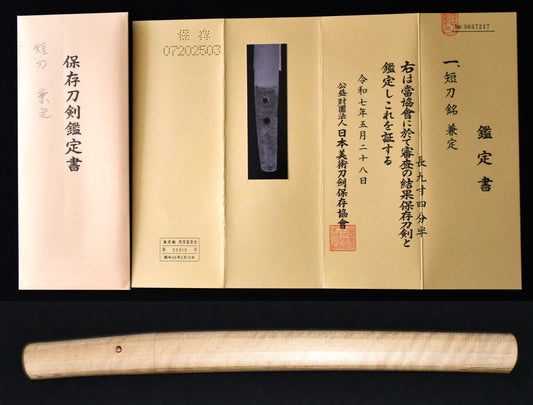 保存刀剣鑑定書
短刀 兼定
保存
07202503
No 3037217
鑑定書
一、短刀 銘 兼定
長九寸四分半
右は當協會に於て審査の結果保存刀剣と
鑑定しこれを証する
令和七年五月二十八日
公益財團法人 日本美術刀剣保存協會